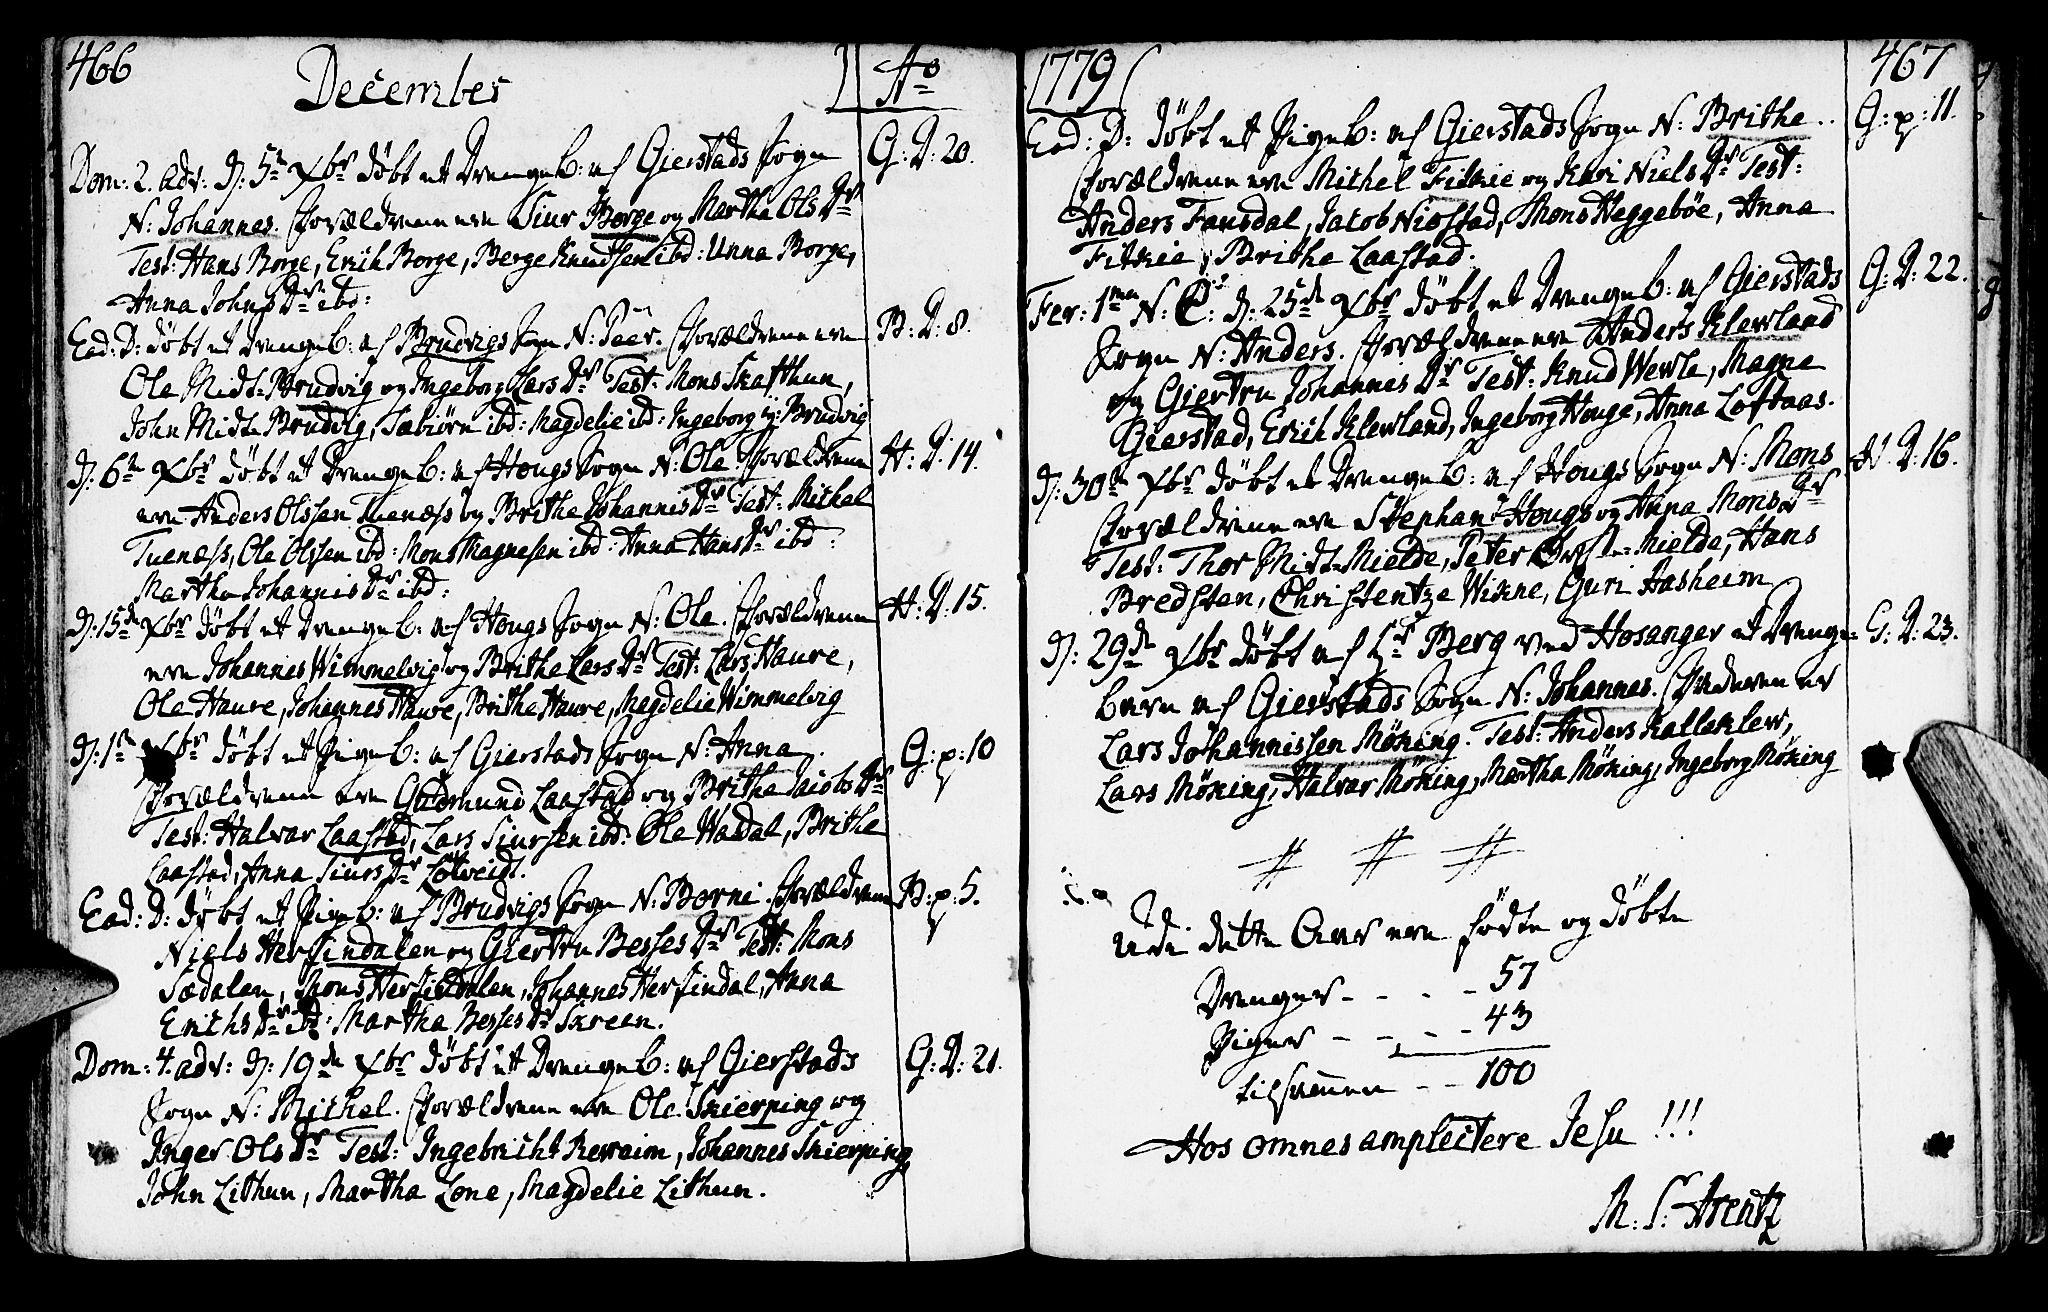 466
December
Ao
Dom: 2. Adv: D: 5te Xbr döbt et Drengeb: af Gierstads Sogn
G: D: 20.
N: Johannes. Forældrene ere Siur Borge og Martha Ols Dr
Test: Hans Borge, Erich Borge, Berge Knudsen ibd: Unna Borge,
Anna Johns Dr ibd:
Ead: D: döbt et Drengeb: af Brudvigs Sogn N: Peer. Forældrene ere
B: D: 8.
Ole Midt-Brudvig og Ingeborg Lars Dr Test: Mons Skafthun,
John Midt-Brudvig, Sæbiörn ibd: Magdelie ibd: Ingeborg y: Brudvig
D: 6te Xbr döbt et Drengeb: af Hougs Sogn N: Ole. Forældrene
H: D: 14.
ere Anders Olssen Tuenæss og Brithe Johannis Dr Test: Michel
Tuenæss, Ole Olssen ibd: Mons Magnesen ibd: Anna Hans Dr ibd:
Martha Johannis Dr ibd:
D: 15de Xbr döbt et Drengeb: af Hougs Sogn N: Ole. Forældrene
H: D: 15.
ere Johannes Wimmelvig og Brithe Lars Dr Test: Lars Haure,
Ole Haure, Johannes Haure, Brithe Haure, Magdelie Wimmelvig
D: Xbr döbt et Pigeb: af Gierstads Sogn N: Anna.
G: p: 10
Forældrene ere Gudmund Laastad og Britha Jacobs Dr
Test: Halvar Laastad, Lars Siursen ibd: Ole Wasdal, Brithe
Laastad, Anna Siurs Dr Lötveidt.
Ead: D: döbt et Pigeb: af Brudvigs Sogn N: Borni. Forældrene
B: p: 5.
Niels Hersindalen og Giertru Besses Dr Test: Mons
Sædalen, Mons Hersindalen, Johannes Hersindal, Anna
Erichs Dr ibd: Martha Besses Dr Skreen.
Dom: 4. adv: D: 19de Xbr döbt et Drengeb: af Gierstads
G: D: 21.
Sogn N: Michel. Forældrene ere Ole Skierping og
Inger Ols Dr Test: Ingebricht Revraim, Johannes Skierping
John Lithun, Martha Lone, Magdelie Lithun.
1779
467
Ead: D: döbt et Pigeb: af Gierstads Sogn N: Brithe..
G: p: 11.
Forældrene ere Michel Fitkie og Kari Niels Dr Test:
Anders Fansdal, Jacob Niostad, Mons Heggeböe, Anna
Fitkie, Brithe Laastad.
Fer: 1ma N: C: D: 25de Xbr döbt et Drengeb: af Gierstads
G: D: 22.
Sogn N: Anders. Forældrene ere Anders Klewland
og Giertru Johannes Dr Test: Knud Wewle, Magne
Gierstad, Erich Klewland, Ingeborg Houge, Anna Loftaas.
D: 30te Xbr döbt et Drengeb: af Hougs Sogn N: Mons
H. D: 16.
Forældrene ere Stephan Hougs og Anna Mons Dr
Test: Thor Midt-Mielde, Peter Mielde, Hans
Bredsten, Christentze Wikne, Guri Aasheim
D: 29de Xbr döbt af Hr Berg ved Hosanger et Drenge-
G: D: 23.
barn af Gierstads Sogn N: Johannes. Faderen er
Lars Johannissen Möking. Test: Anders Kalleklew,
Lars Möking, Halvar Möking, Martha Möking, Ingeborg Möking
# # #
Udi dette Aar ere födte og döbte
Drenger - - - - 57
Piger - - - - 43
tilsamen - - 100
Hos omnes amplectere Jesu!!!
M: S: Arentz